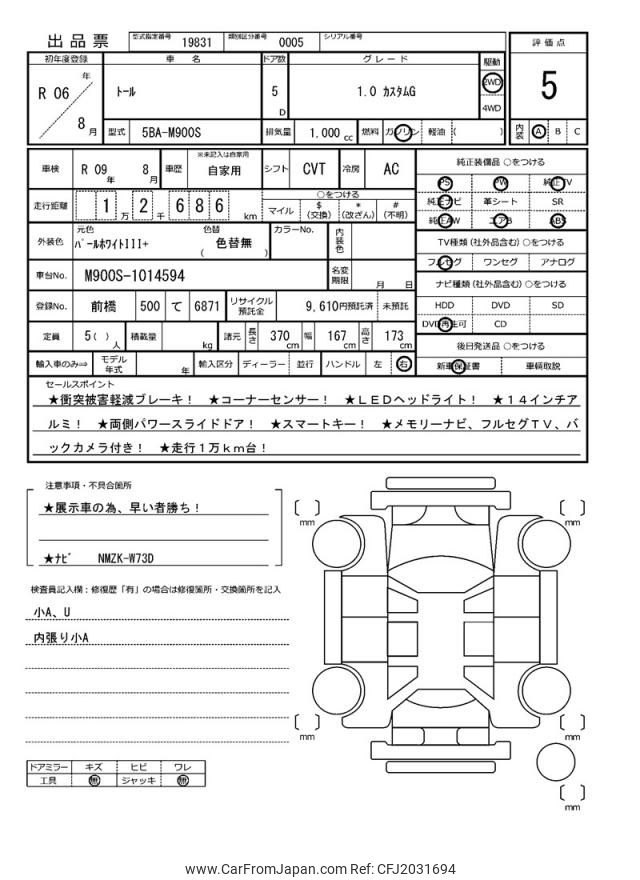 出品票
型式指定番号 19831 類別区分番号 0005 シリアル番号
評価点
5
内装 A B C
初年度登録 車名 ドア数 グレード 駆動
R 06 年 8 月
トール
5 D
1.0 カスタムG
2WD
4WD
型式 5BA-M900S 排気量 1.000 cc 燃料 ガソリン 軽油 ( )
車検 R 09 年 8 月 車歴 ※未記入は自家用 自家用 シフト CVT 冷房 AC
走行距離 1 万 2 千 6 8 6 km
○をつける
マイル $(交換) *(改ざん) #(不明)
外装色 元色 パールホワイトIII+ 色替 ( 色替無 ) カラーNo. 内装色
車台No. M900S-1014594 名変期限 月 日
登録No. 前橋 500 て 6871 リサイクル預託金 9,610円預託済 未預託
定員 5( ) 人 積載量 kg 諸元 長さ 370 cm 幅 167 cm 高さ 173 cm
輸入車のみ⇒ モデル年式 年 輸入区分 ディーラー 並行 ハンドル 左 右
純正装備品 ○をつける
PS PW 純正TV
純正ナビ 革シート SR
純正AW エアB ABS
TV種類(社外品含む)○をつける
フルセグ ワンセグ アナログ
ナビ種類(社外品含む)○をつける
HDD DVD SD
DVD再生可 CD
後日発送品 ○をつける
新車保証書 車輌取説
セールスポイント
★衝突被害軽減ブレーキ! ★コーナーセンサー! ★LEDヘッドライト! ★14インチア
ルミ! ★両側パワースライドドア! ★スマートキー! ★メモリーナビ、フルセグTV、バ
ックカメラ付き! ★走行1万km台!
注意事項・不具合箇所
★展示車の為、早い者勝ち!
★ナビ NMZK-W73D
検査員記入欄:修復歴「有」の場合は修復箇所・交換箇所を記入
小A、U
内張り小A
ドアミラー キズ ヒビ ワレ
工具 無 ジャッキ 無
mm
mm
mm
mm
mm
www.CarFromJapan.com Ref: CFJ2031694